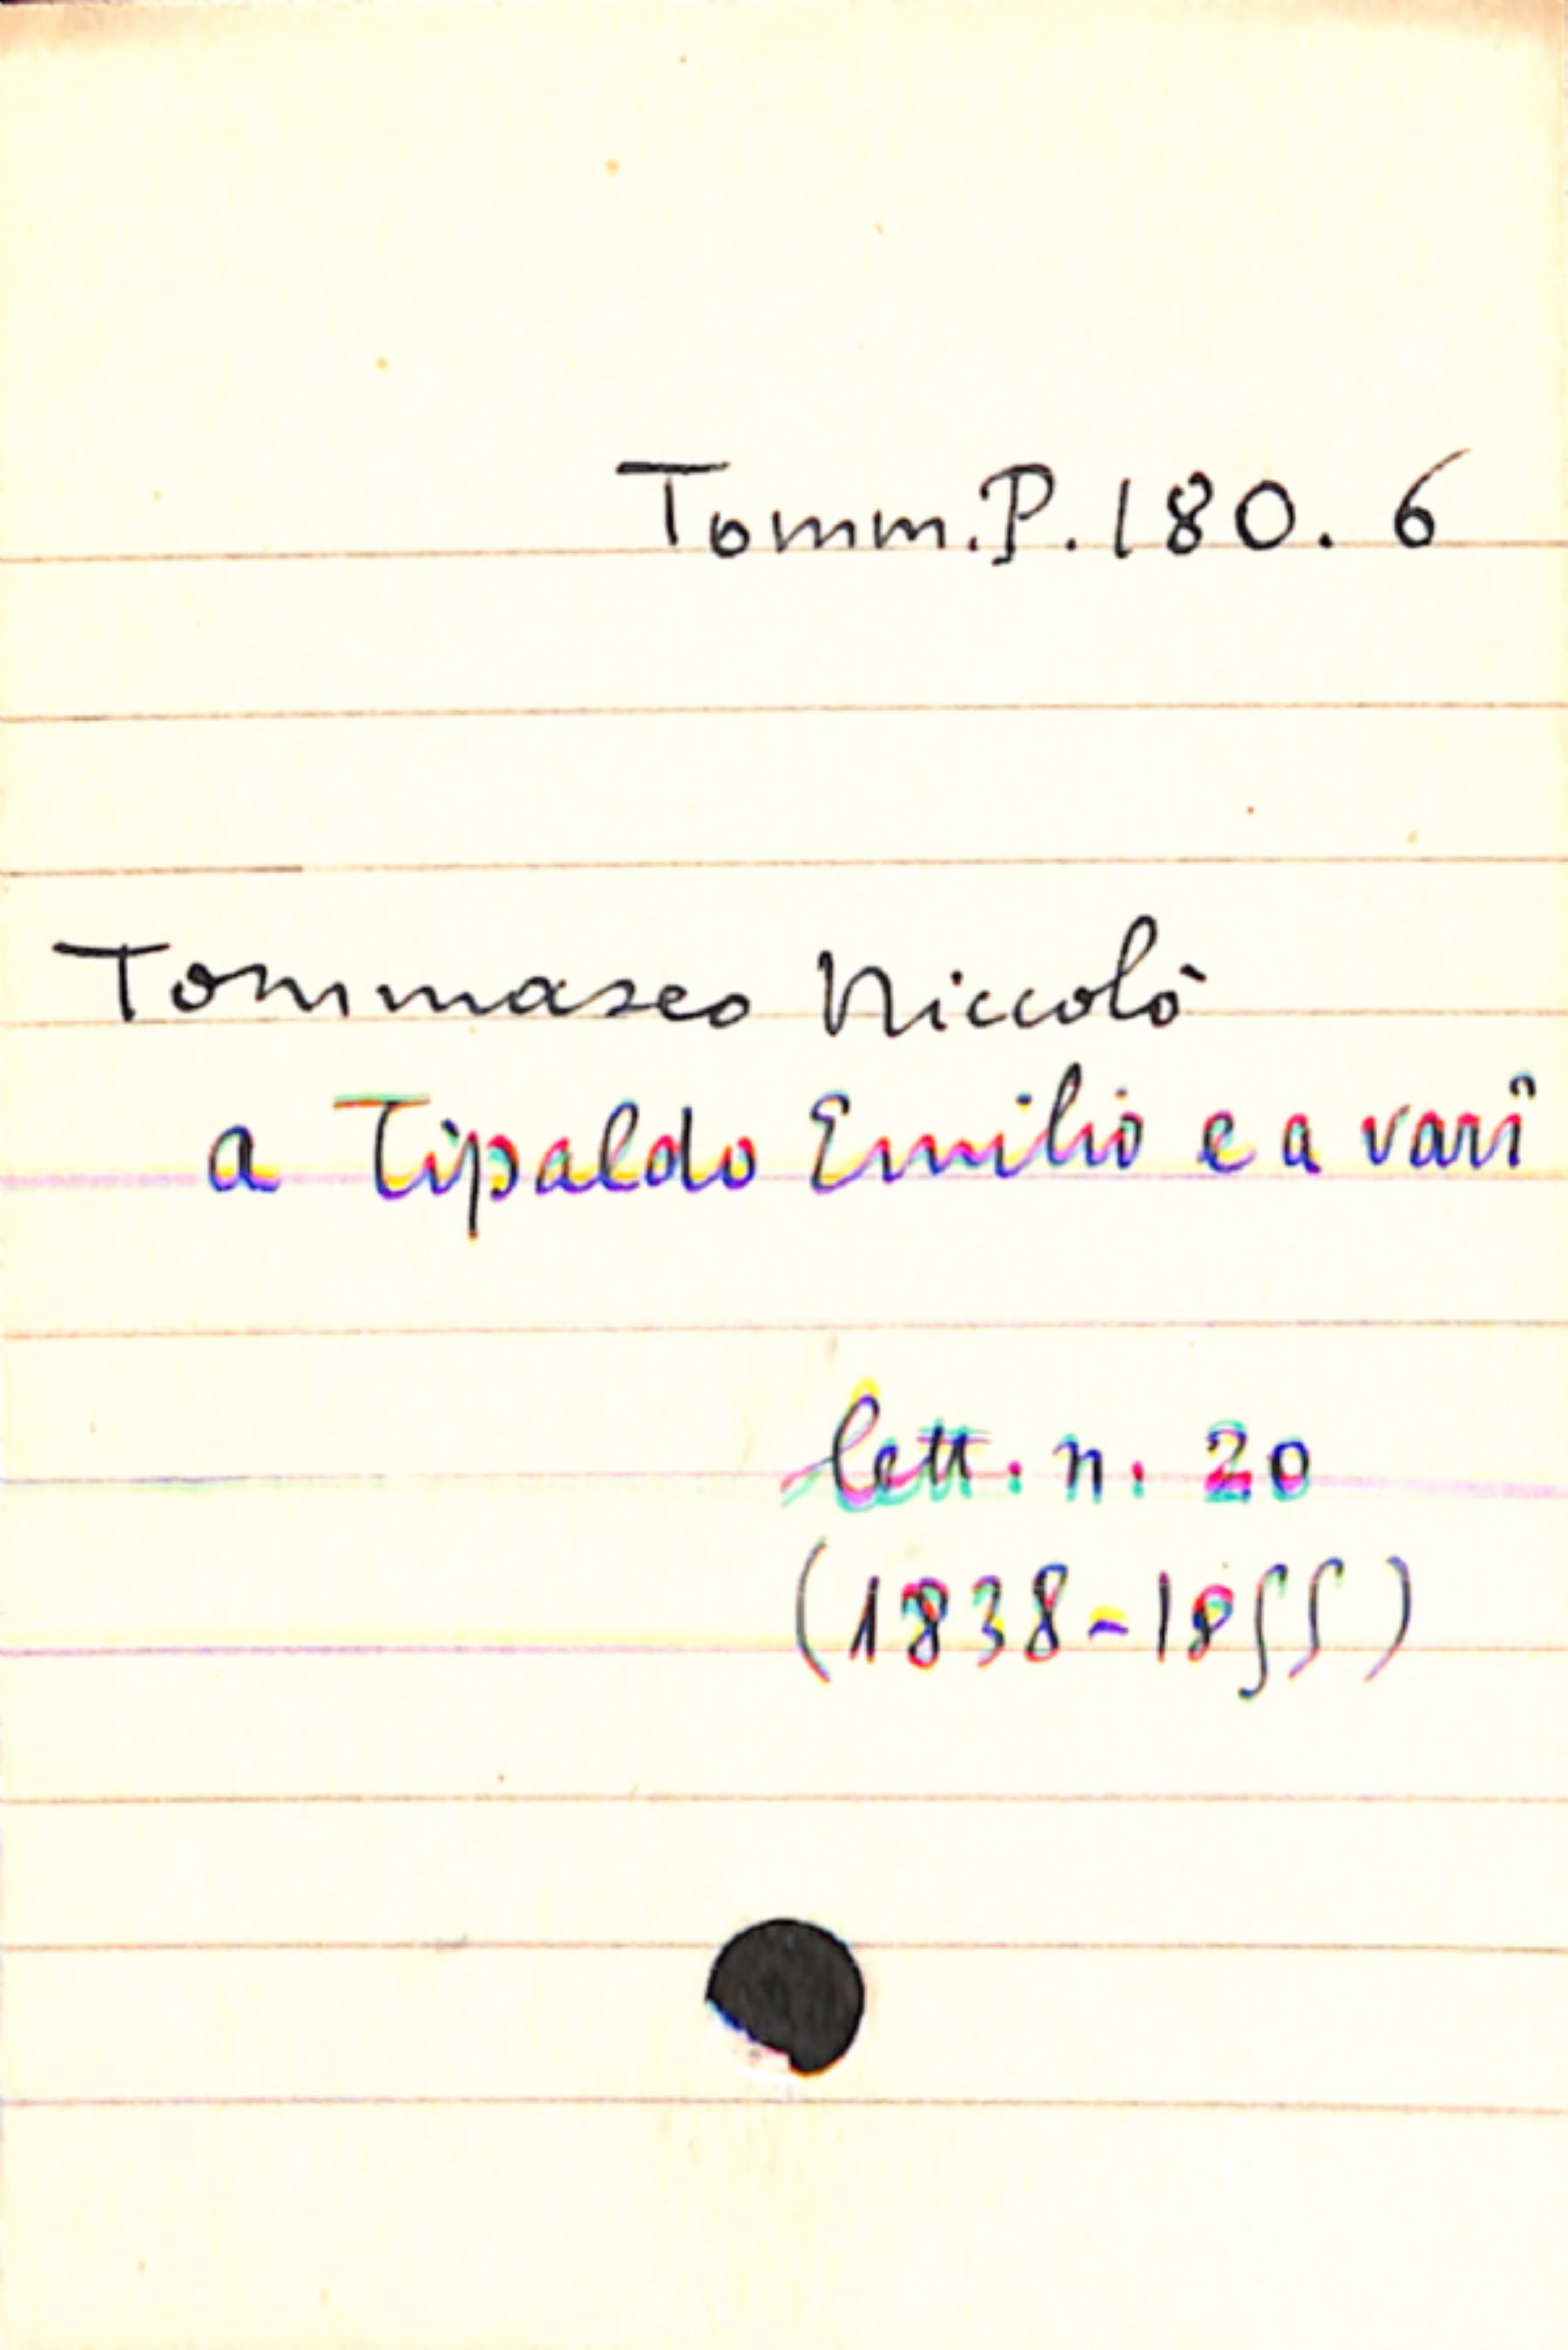 Tomm.P.180.6
Tommaseo Niccolò
a Tipaldo Emilio e a vari
lett. n. 20
(1838-1855)